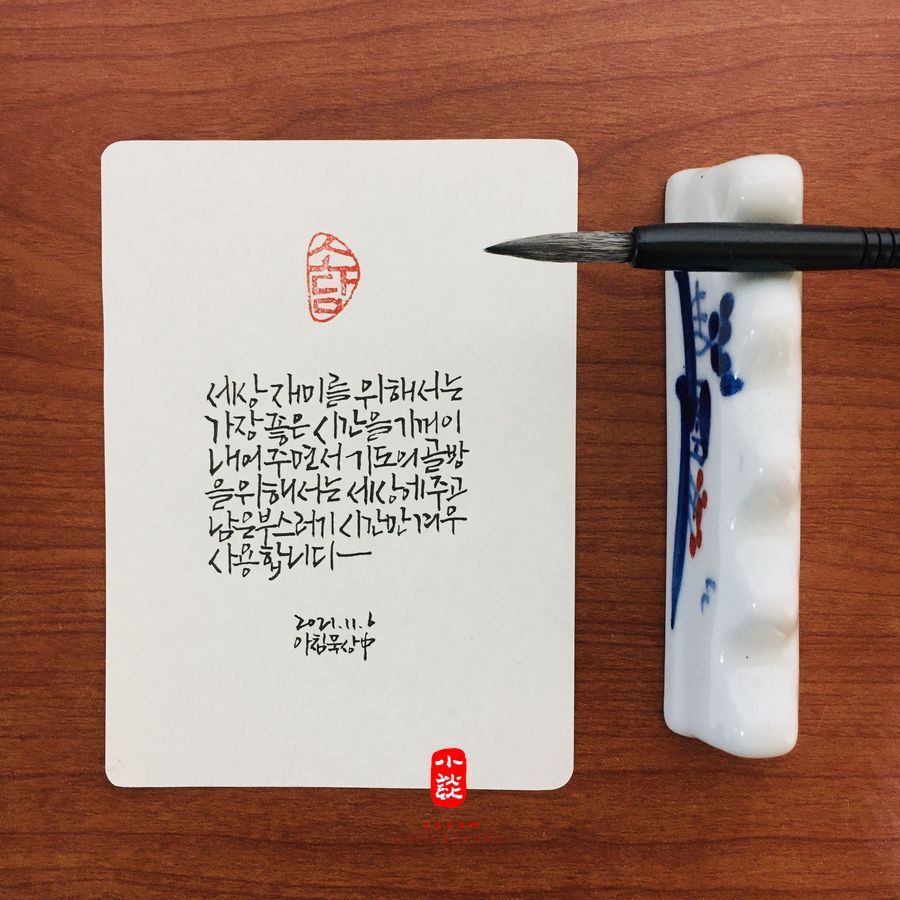 소담
세상 재미를 위해서는
가장 좋은 시간을 기꺼이
내어 주면서 기도의 골방
을 위해서는 세상에 주고
남은 부스러기 시간만 겨우
사용합니다
2021.11.6
아침묵상中
小談